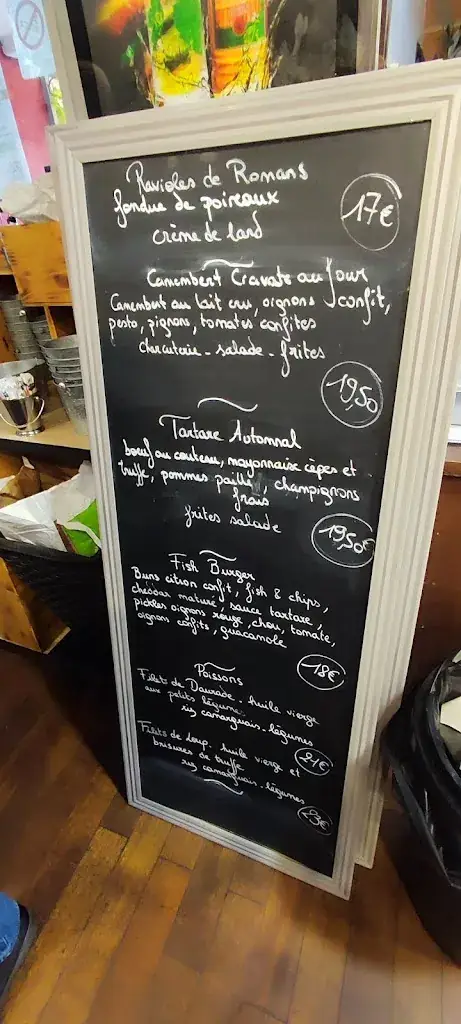 Ravioles de Romans
fondue de poireaux
crème de lard
17€
Camembert Cravate au Four
Camembert au lait cru, oignons confit,
pesto, pignons, tomates confites
Charcuterie - salade - frites
19,50
Tartare Automnal
bœuf au couteau, mayonnaise cèpes et
truffe, pommes paille, champignons
frais
frites salade
19,50€
Fish Burger
Buns citron confit, fish & chips,
cheddar maturé, sauce tartare,
pickles oignons rouge, chou, tomate,
oignon confits, guacamole
18€
Poissons
Filets de Daurade - huile vierge
aux petits légumes
riz camarguais - légumes
21€
Filets de loup - huile vierge et
brisures de truffe
riz camarguais - légumes
23€